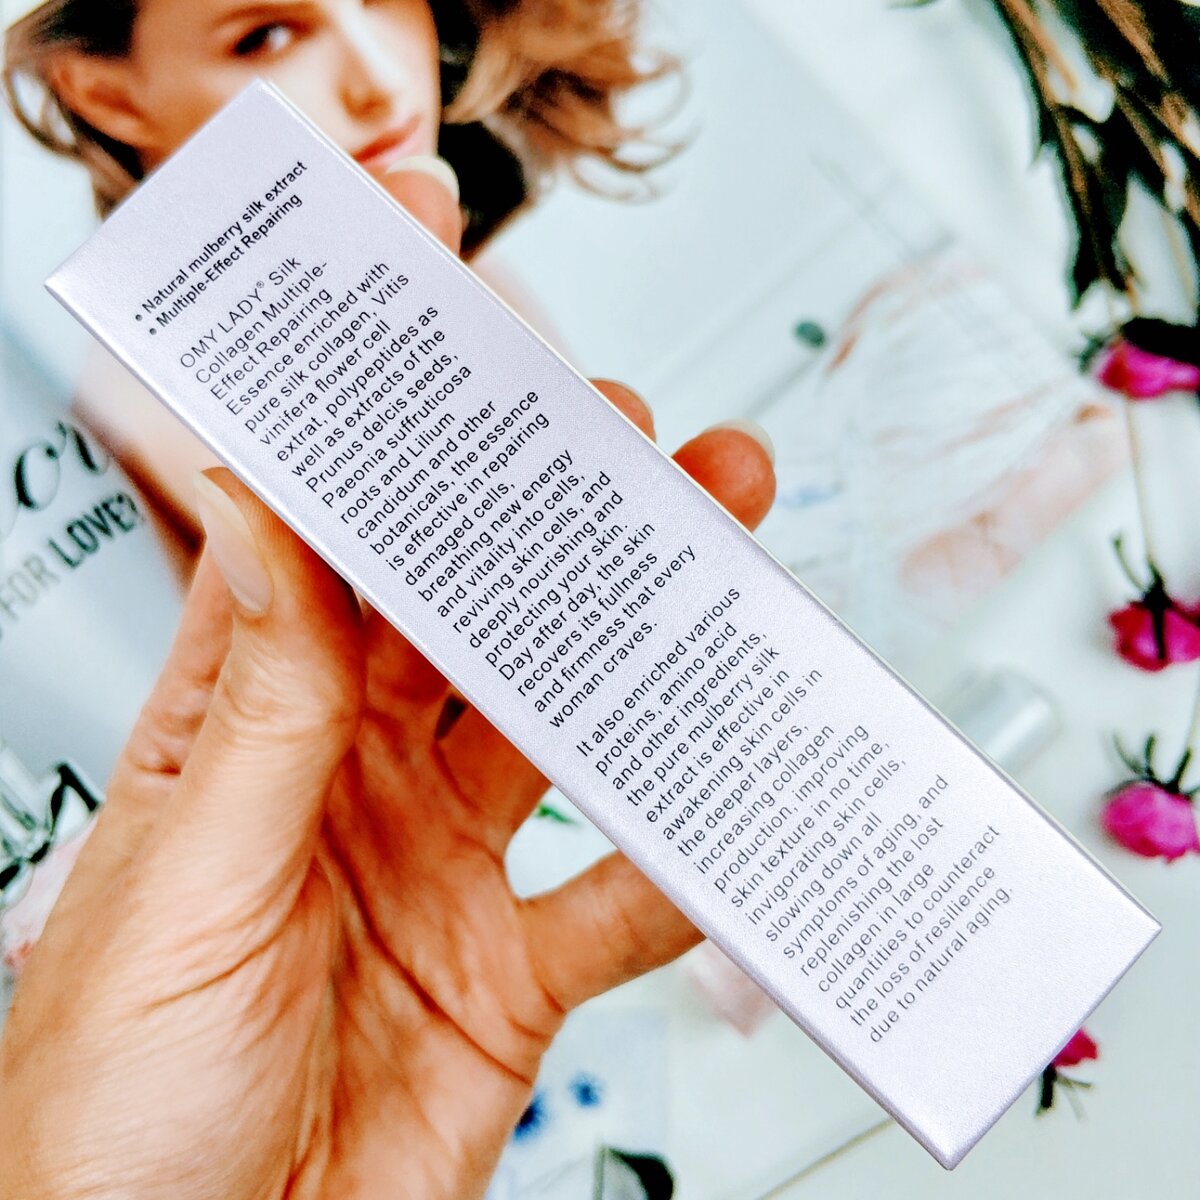 • Natural mulberry silk extract
• Multiple-Effect Repairing
OMY LADY® Silk
Collagen Multiple-
Effect Repairing
Essence enriched with
pure silk collagen, Vitis
vinifera flower cell
extrat, polypeptides as
well as extracts of the
Prunus delcis seeds,
Paeonia suffruticosa
roots and Lilium
candidum and other
botanicals, the essence
is effective in repairing
damaged cells,
breathing new energy
and vitality into cells,
reviving skin cells, and
deeply nourishing and
protecting your skin.
Day after day, the skin
recovers its fullness
and firmness that every
woman craves.
It also enriched various
proteins, amino acid
and other ingredients,
the pure mulberry silk
extract is effective in
awakening skin cells in
the deeper layers,
increasing collagen
production, improving
skin texture in no time,
invigorating skin cells,
slowing down all
symptoms of aging, and
replenishing the lost
collagen in large
quantities to counteract
the loss of resilience
due to natural aging.
FOR LOVE?